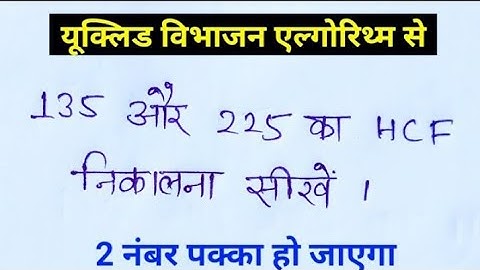 यूक्लिड विभाजन एल्गोरिथ्म से
135 और 225 का HCF
निकालना सीखें ।
2 नंबर पक्का हो जाएगा